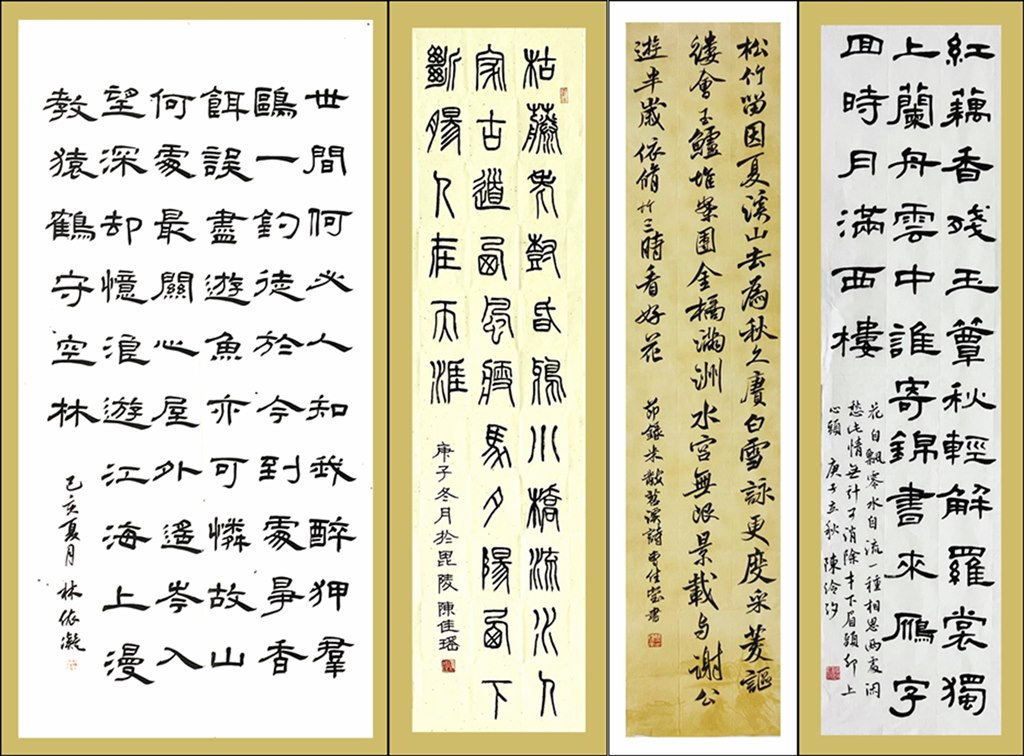 世間何必人知我醉狎羣
鷗一釣徒於今到處爭香
餌誤盡遊魚亦可憐故山
何處最關心屋外遙岑入
望深却憶浪遊江海上漫
教猿鶴守空林
己亥夏月 林依凝
枯藤老樹昏鴉小橋流水人
家古道西風瘦馬夕陽西下
斷腸人在天涯
庚子冬月於毘陵陳佳瑤
松竹留因夏溪山去為秋久賡白雪詠更度采菱謳
縷會玉鱸堆槃團金橘滿洲水宮無限景載与謝公
遊半歲依脩竹三時看好花
節錄米黻苕溪詩 曹佳書
紅藕香殘玉簟秋輕解羅裳獨
上蘭舟雲中誰寄錦書來鴈字
回時月滿西樓
花自飄零水自流一種相思兩處閑
愁此情無計可消除才下眉頭卻上
心頭 庚子立秋 陳伶汐